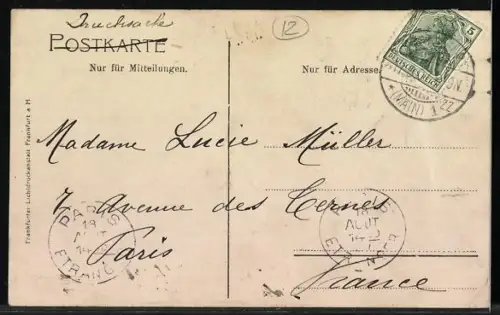 Drucksache
12
POSTKARTE
5
Nur für Mitteilungen.
Nur für Adresse.
DEUTSCHES REICH
(MAIN) 1
Madame Lucie Müller
7 Avenue des Ternes
Paris
France
PARIS
18
AOUT
ETRANGER
PARIS
18
AOUT
ETRANGER
Frankfurter Lichtdruckanstalt Frankfurt a M.